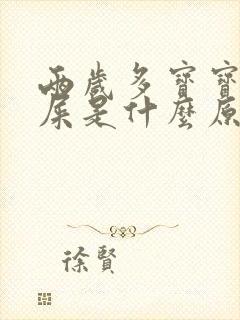 两歲多寶寶
屎是什麼原
徐賢